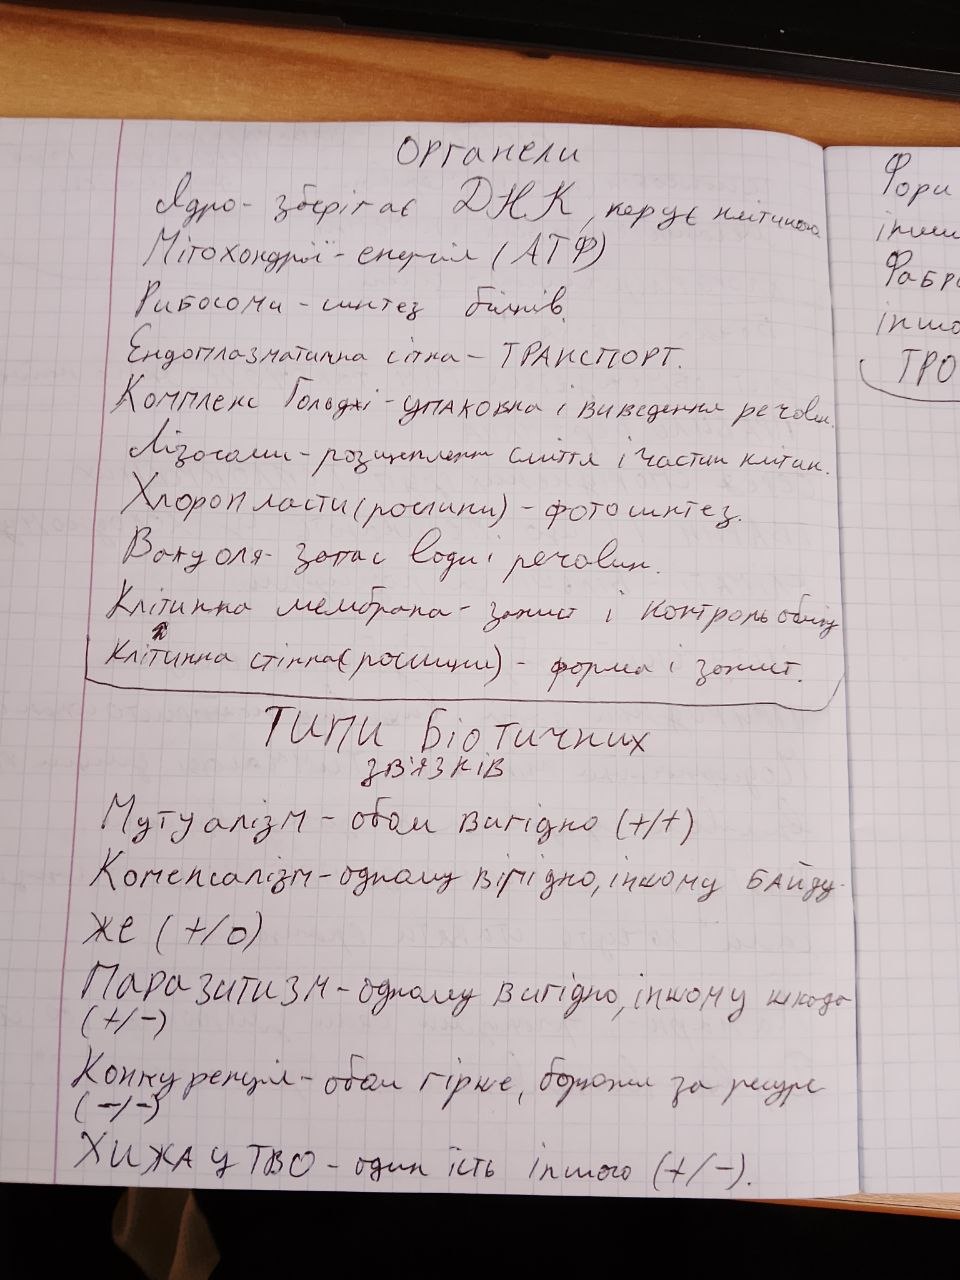 Органели
Ядро- зберігає ДНК, керує клітиною
Мітохондрії - енергія (АТФ)
Рибосоми - синтез білків.
Ендоплазматична сітка - ТРАНСПОРТ.
Комплекс Гольджі - упаковка і виведення речовин.
Лізосоми - розщеплення сміття і частин клітин.
Хлоропласти (рослини) - фотосинтез.
Вакуоля - запас води і речовин.
Клітинна мембрана - захист і контроль обміну
Клітинна стінка (рослини) - форма і захист.
Типи біотичних
зв'язків
Мутуалізм - обом вигідно (+/+)
Коменсалізм - одному вигідно, іншому байду-
же (+/0)
Паразитизм - одному вигідно, іншому шкода
(+/-)
Конкуренція - обом гірше, боротьба за ресурс
(-/-)
Хижацтво - один їсть іншого (+/-).
ТРО